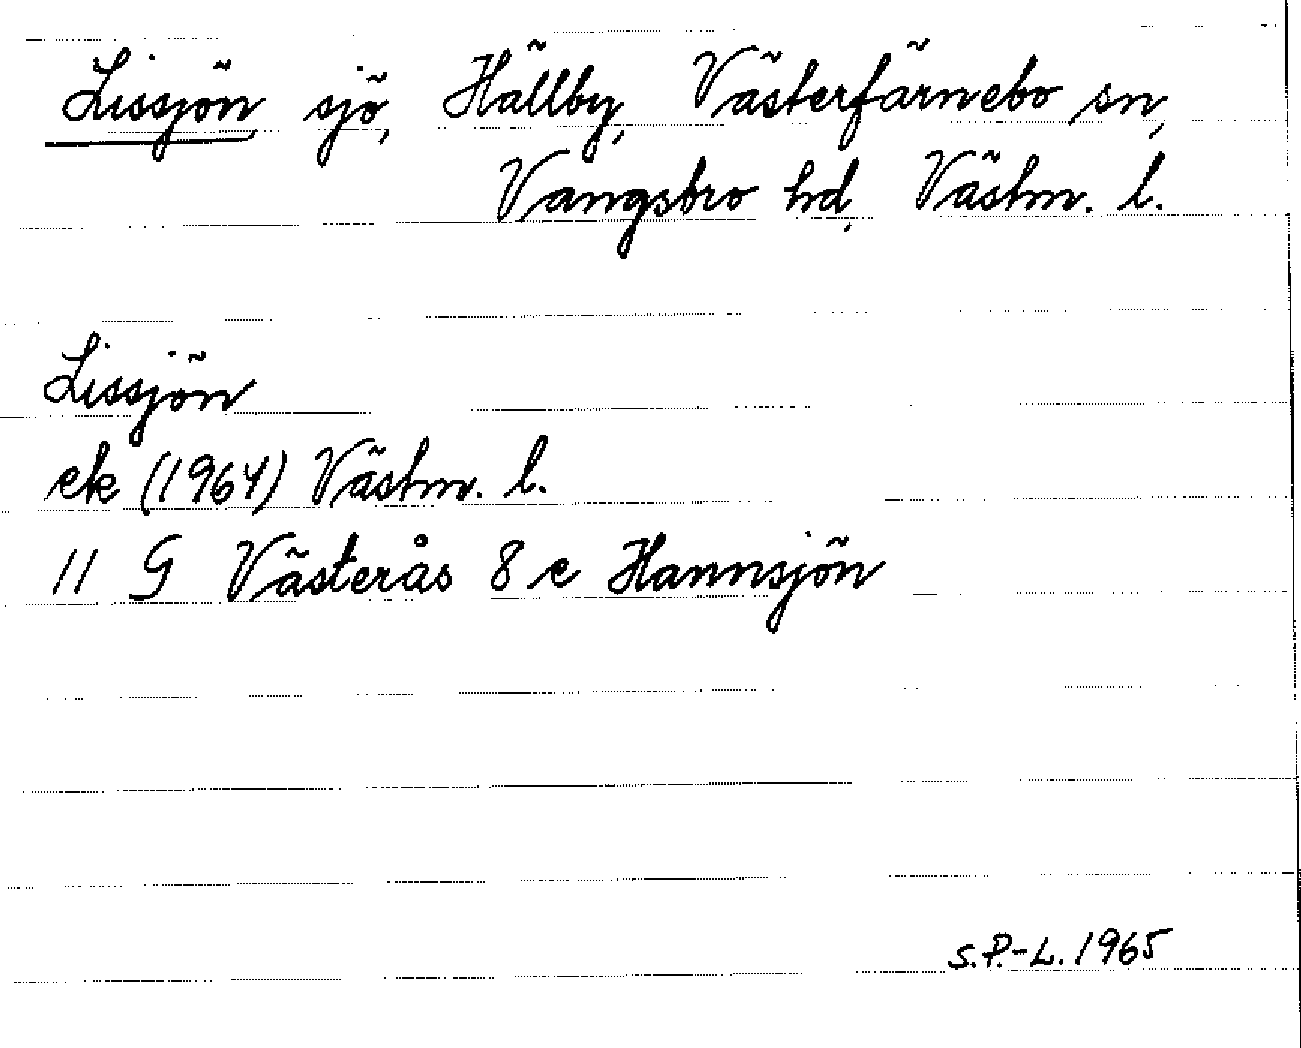 Lissjön sjö, Hällby, Västerfärnebo sn,
Vangsbro hd, Västm. l.
Lissjön
ek (1964) Västm. l.
11 G Västerås 8 e Hannsjön
S.P.-L. 1965